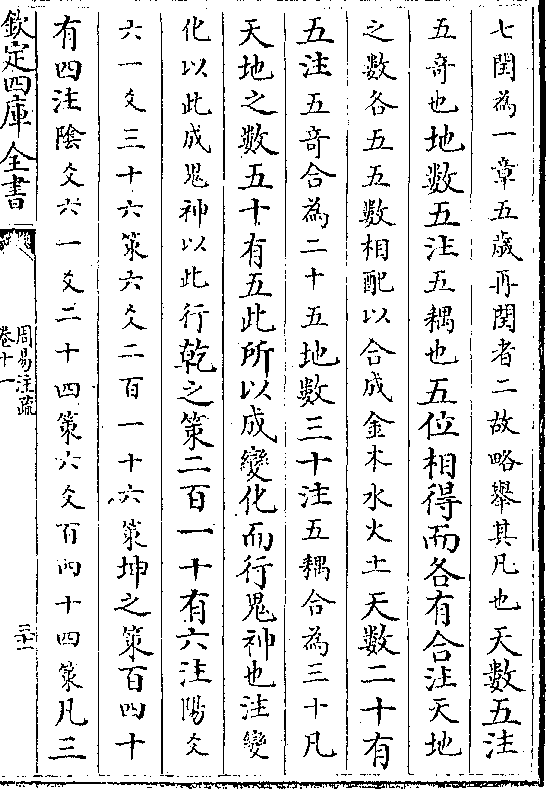 七閏為一章五歲再閏者二故略舉其凡也天數五注
五奇也地數五注五耦也五位相得而各有合注天地
之數各五五數相配以合成金木水火土天數二十有
五注五奇合為二十五地數三十注五耦合為三十凡
天地之數五十有五此所以成變化而行鬼神也注變
化以此成鬼神以此行乾之策二百一十有六注陽爻
六一爻三十六策六爻二百一十六策坤之策百四十
有四注陰爻六一爻二十四策六爻百四十四策凡三
欽定四庫全書
周易注疏
卷十一